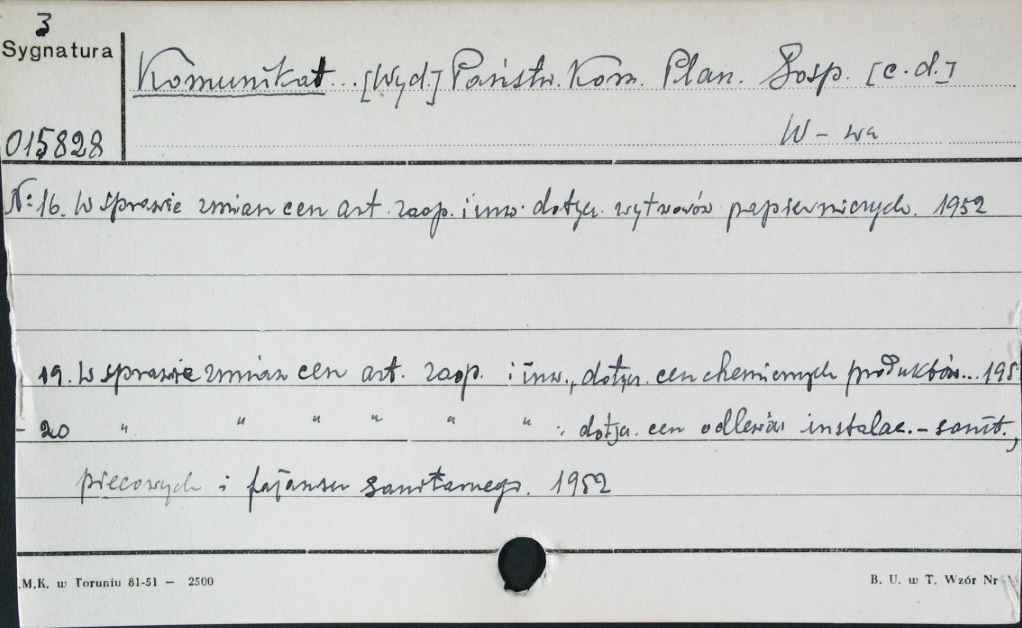 3
Sygnatura
Komunikat... [Wyd.] Państw. Kom. Plan. Gosp. [c.d.]
015828
W-wa
Nr 16. W sprawie zmian cen art. zaop. i inw. dotycz. wytworów papierniczych. 1952
19. W sprawie zmian cen art. zaop. i inw., dotycz. cen chemicznych produktów... 195
- 20 " " " " " " : dotycz. cen odlewów instalac.-sanit.,
piecowych i fajansu sanitarnego. 1952
.M.K. w Toruniu 81-51 — 2500
B. U. w T. Wzór Nr